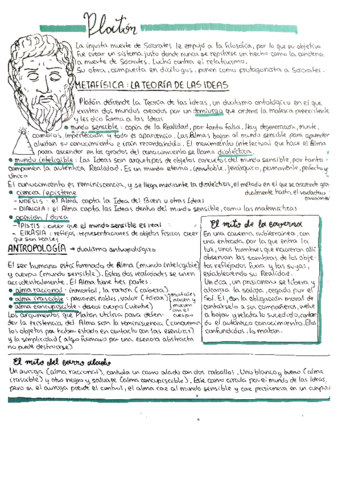 Platón
La injusta muerte de Sócrates le empujó a la filosofía, por lo que su objetivo
fue crear un sistema justo donde nunca se repitiese un hecho como la condena
a muerte de Sócrates. Luchó contra el relativismo.
Su obra, compuesta en diálogos, ponen como protagonista a Sócrates.
METAFÍSICA: LA TEORÍA DE LAS IDEAS
Platón defiende la Teoría de las Ideas, un dualismo ontológico en el que
existen dos mundos creados por un demiurgo que ordena la materia preexistente
y les dio forma a las Ideas
mundo sensible: copia de la Realidad, por tanto falso. Hay degeneración, muerte,
cambios, imperfección y todo es apariencia. Las Almas bajan al mundo sensible para
olvidan su conocimiento y irán recordándolo. El movimiento intelectual que hace el Alma
para ascender en los grados del conocimiento se llama dialéctica.
mundo inteligible: Las Ideas son arquetipos de objetos concretos del mundo sensible, por tanto
componen la auténtica Realidad. Es un mundo eterno, inmutable, jerárquico, permanente, perfecto y
único
El conocimiento es reminiscencia, y se llega mediante la dialéctica, el método en el que se asciende
dualmente hasta el verdadero
conocimiento
ciencia / episteme
- NOESIS: el Alma capta la Idea del Bien u otras Ideas
- DIANOIA: el Alma capta las Ideas dentro del mundo sensible, como las matemáticas
opinión / doxa
- PISTIS: creer que el mundo sensible es real
- EIKASIA: reflejos, representaciones de objetos físicos creer
que son reales
ANTROPOLOGÍA → dualismo antropológico
El ser humano está formado de Alma (mundo inteligible)
y cuerpo (mundo sensible). Estas dos realidades se unen
accidentalmente. El Alma tiene tres partes:
alma racional: inmortal, la razón (cabeza)
alma irascible: pasiones nobles, valor (tórax)
alma concupiscible: deseos cuerpo (vientre)
mortales
nacen y
mueren
con el
cuerpo
Los argumentos que Platón utiliza para defen-
der la existencia del Alma son la reminiscencia (conocemos
los objetos por haber estado en contacto con las esencias)
y la simplicidad (algo humano por una esencia abstracta
no puede destruirse)
El mito de la caverna
En una caverna subterránea, con
una entrada por la que entra la
luz, unos hombres se encuentran allí
observan las sombras de los obje-
tos reflejados fuera y las suyas,
estableciendo su Realidad.
Un día, un prisionero se libera y
alcanza la salida, cegado por el
Sol. Él, con la obligación moral de
contárselo a sus compañeros, vuelve
a bajar y relata lo sucedido, contar
el auténtico conocimiento. Ellos,
confundidos, lo matan.
El mito del carro alado
Un auriga (alma racional), conduce un carro alado con dos caballos. Uno blanco y bueno (alma
irascible) y otro negro y salvaje (alma concupiscible). Este carro circula por el mundo de las Ideas,
pero si el auriga pierde el control, el alma cae al mundo sensible y cae prisionera en un cuerpo